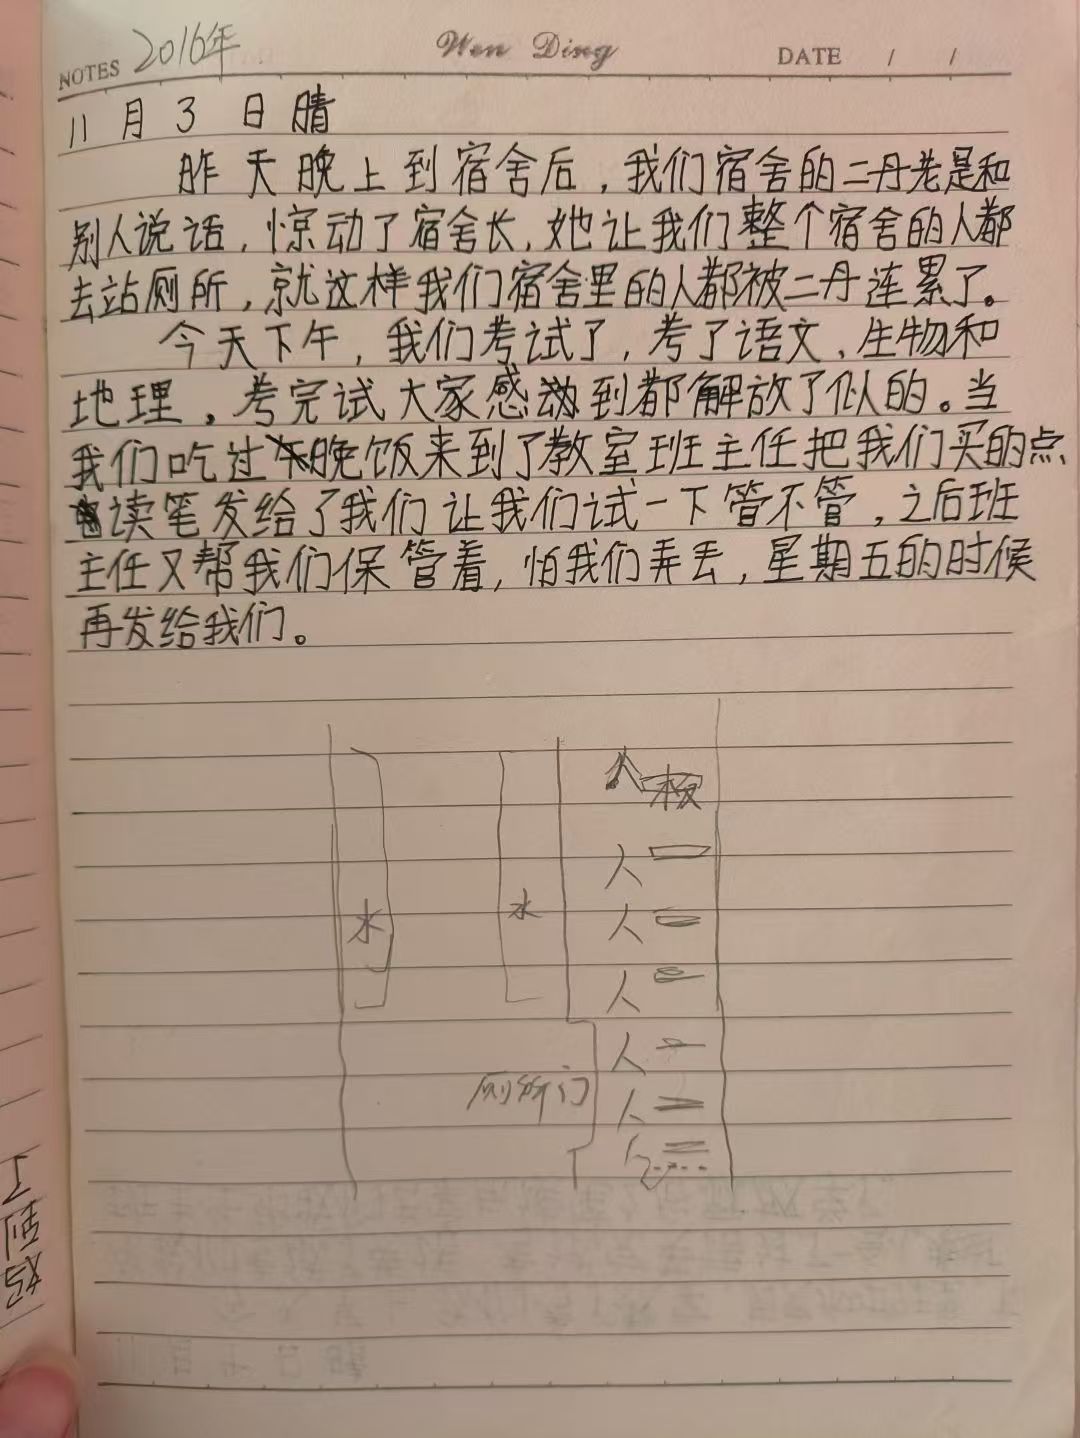 NOTES 2016年 Wen Ding DATE / /
11月3日晴
昨天晚上到宿舍后，我们宿舍的二丹老是和
别人说话，惊动了宿舍长，她让我们整个宿舍的人都
去站厕所，就这样我们宿舍里的人都被二丹连累了。
今天下午，我们考试了，考了语文、生物和
地理。考完试大家感到都解放了似的。当
我们吃过晚饭来到了教室班主任把我们买的点
读笔发给了我们让我们试一下管不管，之后班
主任又帮我们保管着，怕我们弄丢，星期五的时候
再发给我们。
人 板
人
水 水 人
人
人
厕所门 人
人